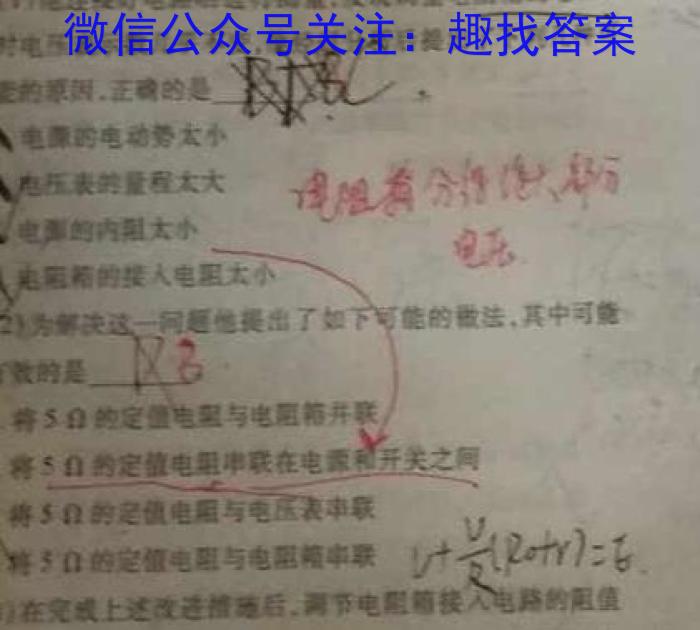 微信公众号关注：趣找答案
对电压
的原因,正确的是
电源的电动势太小
电压表的量程太大
电源的内阻太小
电阻箱的接入电阻太小
2)为解决这一问题他提出了如下可能的做法,其中可能
有效的是 B
将5Ω的定值电阻与电阻箱并联
将5Ω的定值电阻串联在电源和开关之间
将5Ω的定值电阻与电压表串联
将5Ω的定值电阻与电阻箱串联
)在完成上述改进措施后,调节电阻箱接入电路的阻值
电阻
电压
U+U/R(R0+r)=E.